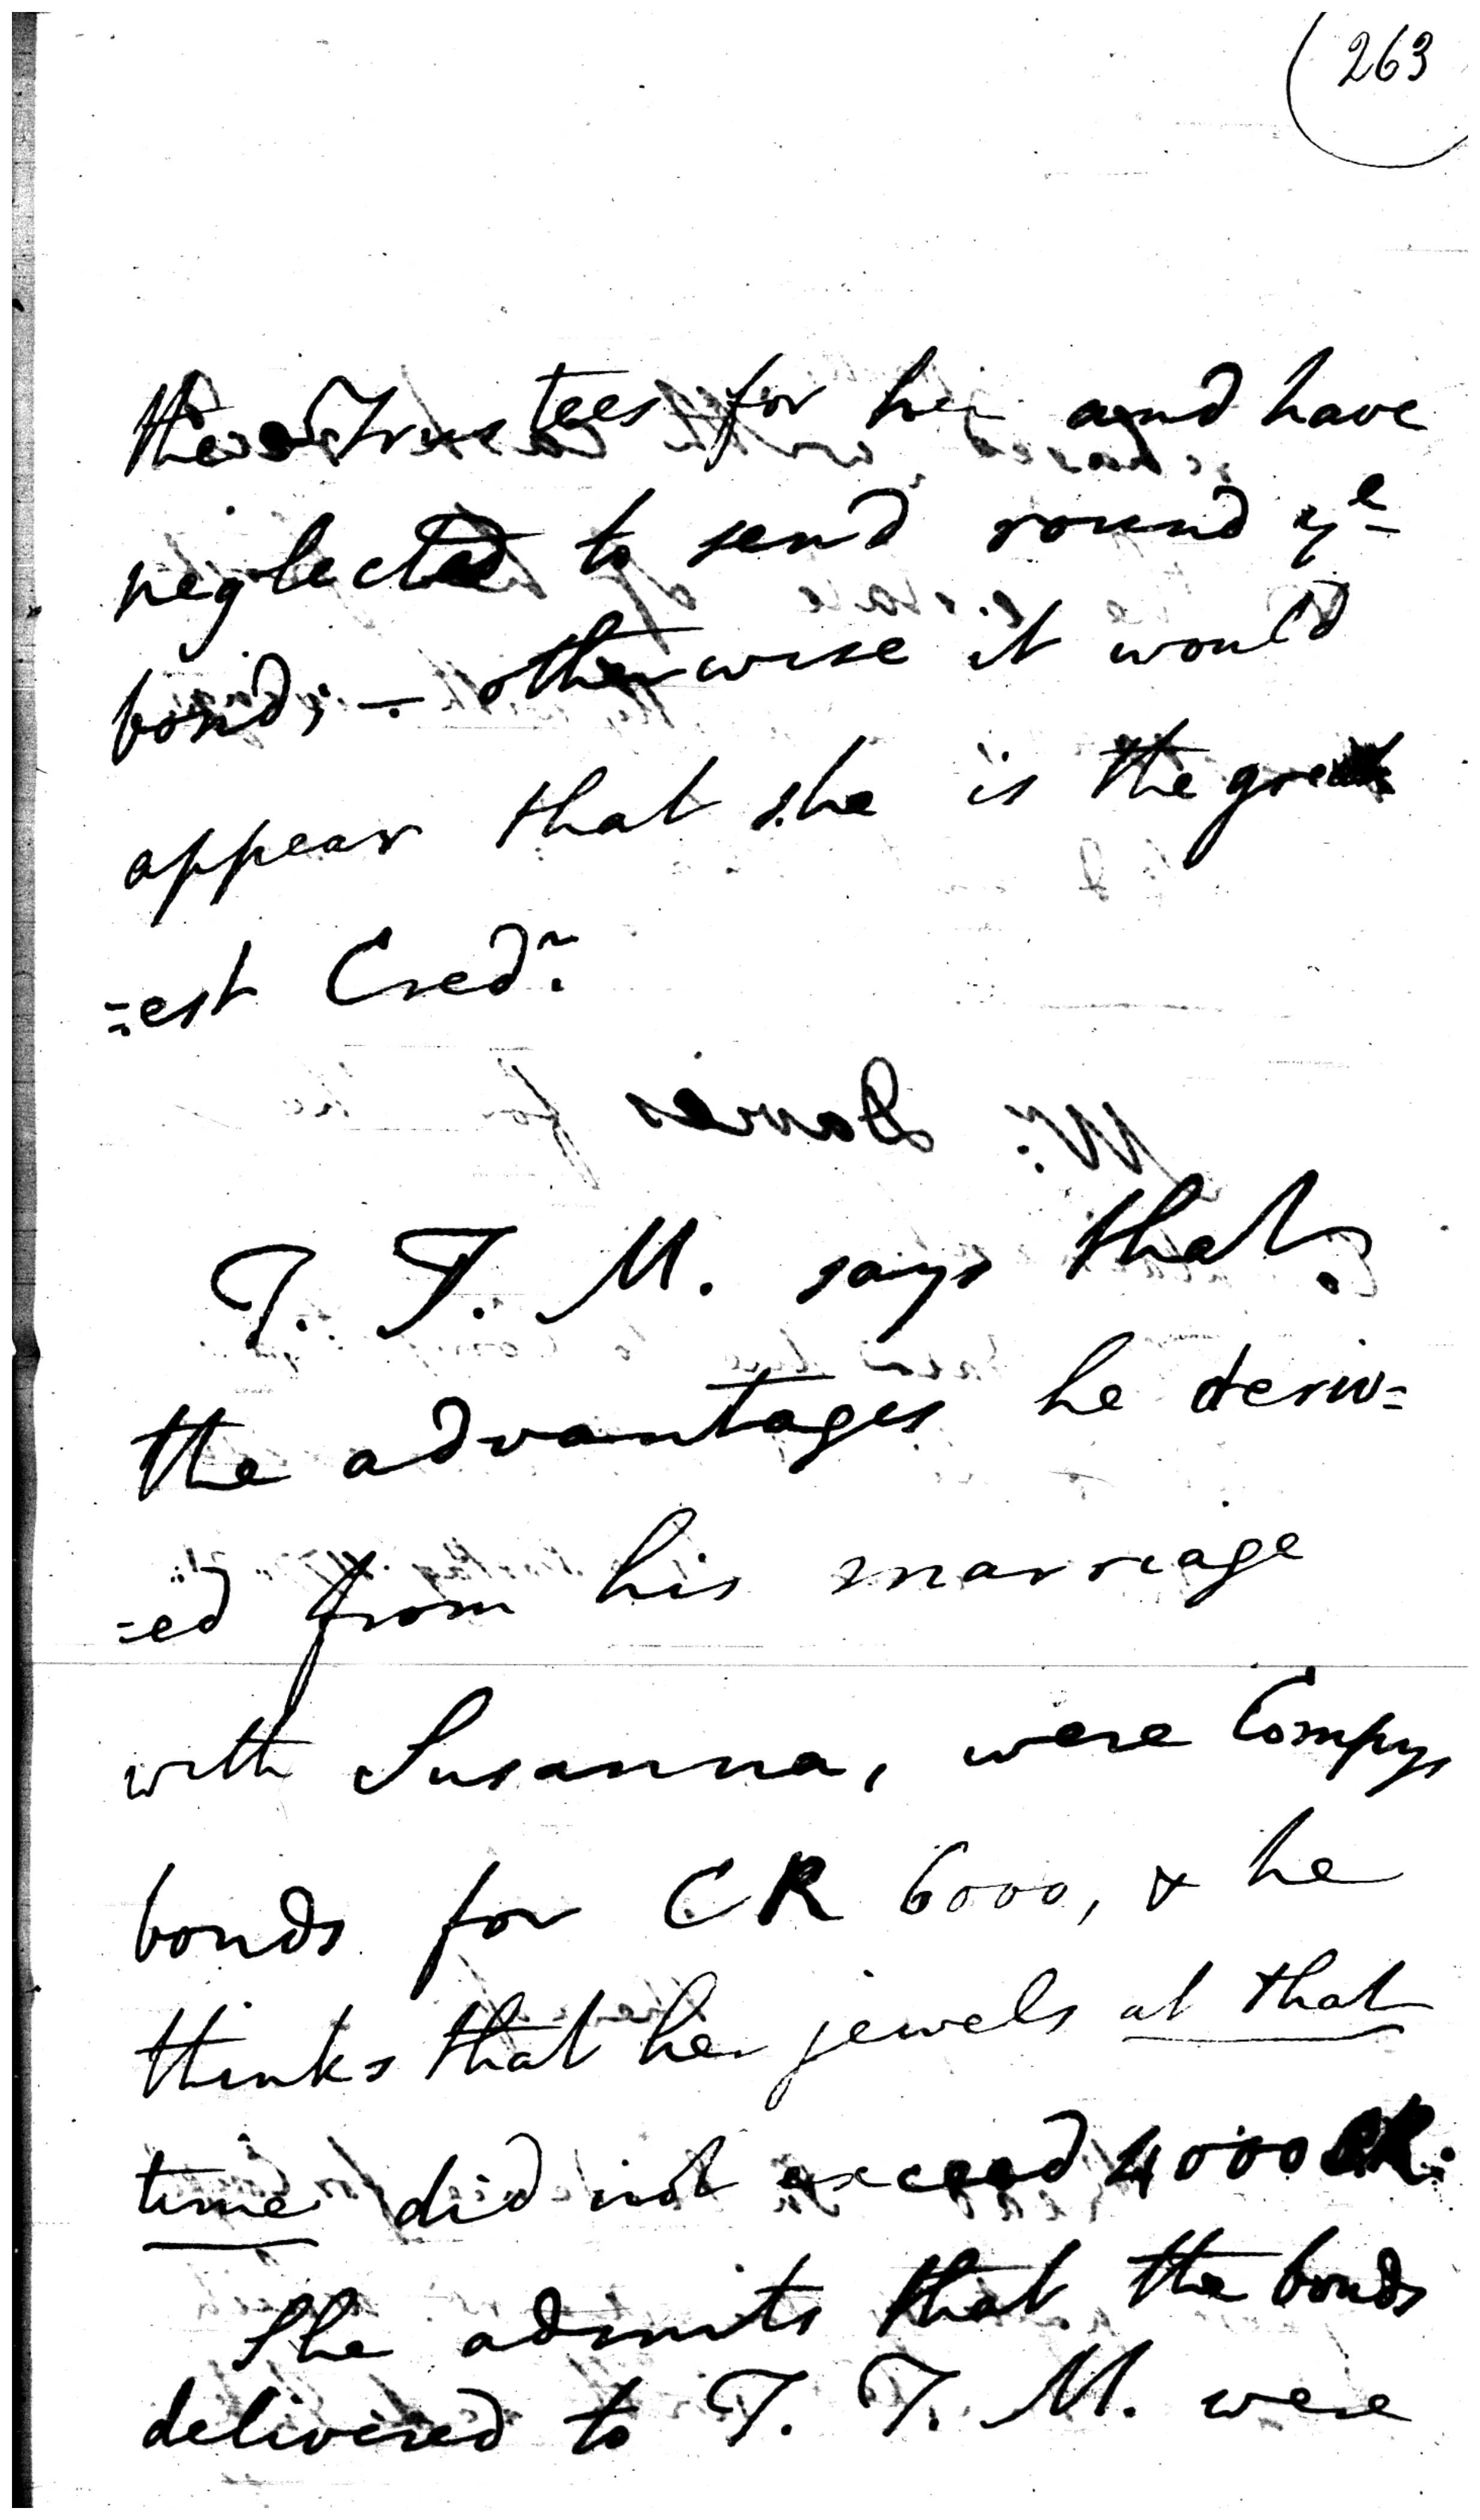 263
the Trustees for her and have
neglected to send round yᵉ
bond; — otherwise it would
appear that she is the great
=est Credʳ.
T. T. M. says that
the advantages he deriv=
=ed from his marriage
with Susanna, were Compys
bonds for CR 6000, & he
thinks that her jewels at that
time did not exceed 4000 CR.
She admits that the bonds
delivered to T. T. M. were